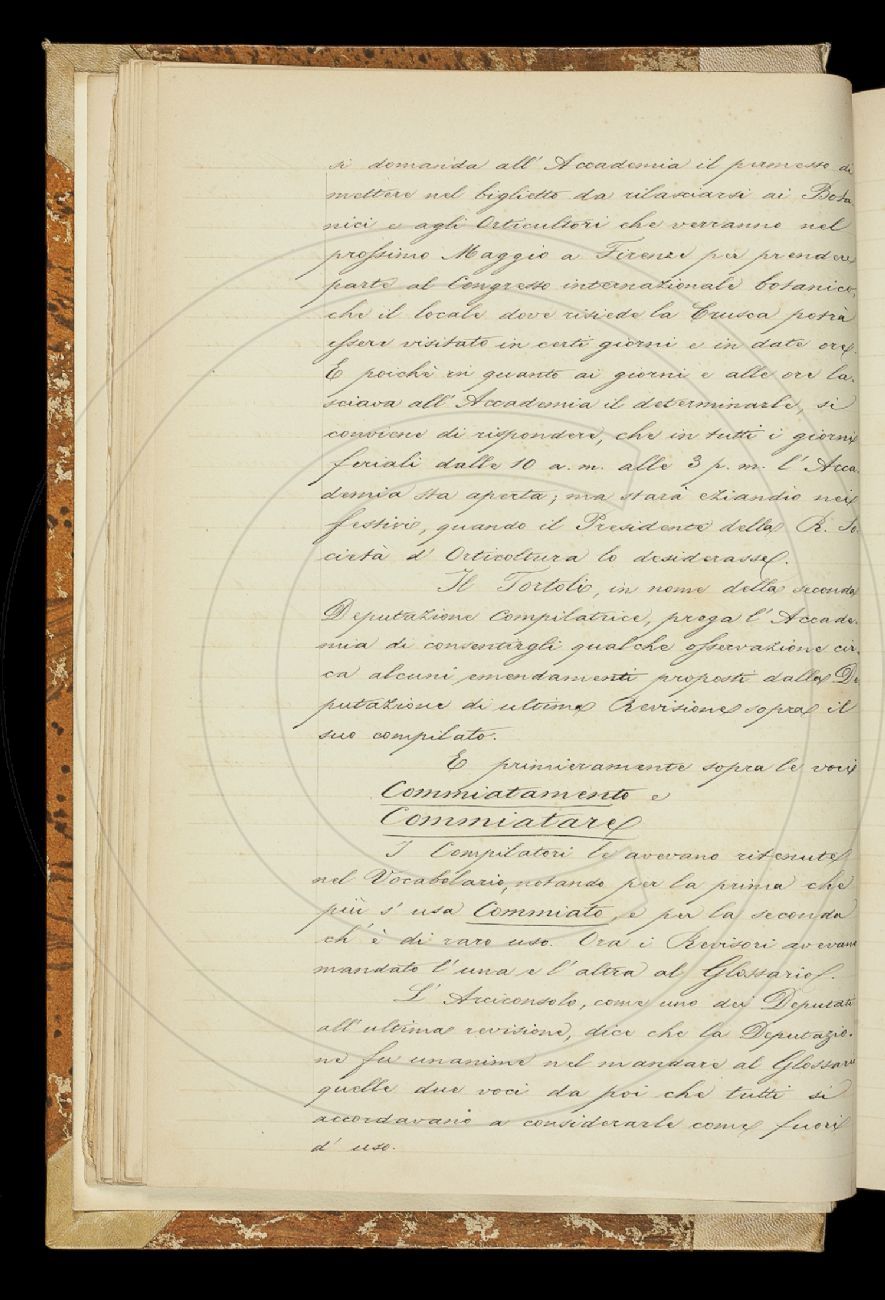 si domanda all' Accademia il permesso di
mettere nel biglietto da rilasciarsi ai Bota
nici e agli Orticultori che verranno nel
prossimo Maggio a Firenze per prendere
parte al Congresso internazionale botanico,
che il locale dove risiede la Crusca potrà
essere visitato in certi giorni e in date ore.
E poichè in quanto ai giorni e alle ore la-
sciava all' Accademia il determinarle, si
conviene di rispondere, che in tutti i giorni
feriali dalle 10 a. m. alle 3 p. m. l' Acca-
demia sta aperta; ma starà eziandio nei
festivi, quando il Presidente della R. So-
cietà d' Orticoltura lo desiderasse.
Il Tortoli, in nome della seconda
Deputazione Compilatrice, prega l' Accade-
mia di consentirgli qualche osservazione cir-
ca alcuni emendamenti proposti dalla De
putazione di ultima Revisione sopra il
suo compilato.
E primieramente sopra le voci
Commiatamento e
Commiatare
I Compilatori le avevano ritenute
nel Vocabolario, notando per la prima che
più s' usa Commiato, e per la seconda
ch' è di raro uso. Ora i Revisori avevano
mandato l' una e l' altra al Glossario.
L' Arciconsolo, come uno dei Deputati
all' ultima revisione, dice che la Deputazio-
ne fu unanime nel mandare al Glossario
quelle due voci da poi che tutti si
accordavano a considerarle come fuori
d' uso.